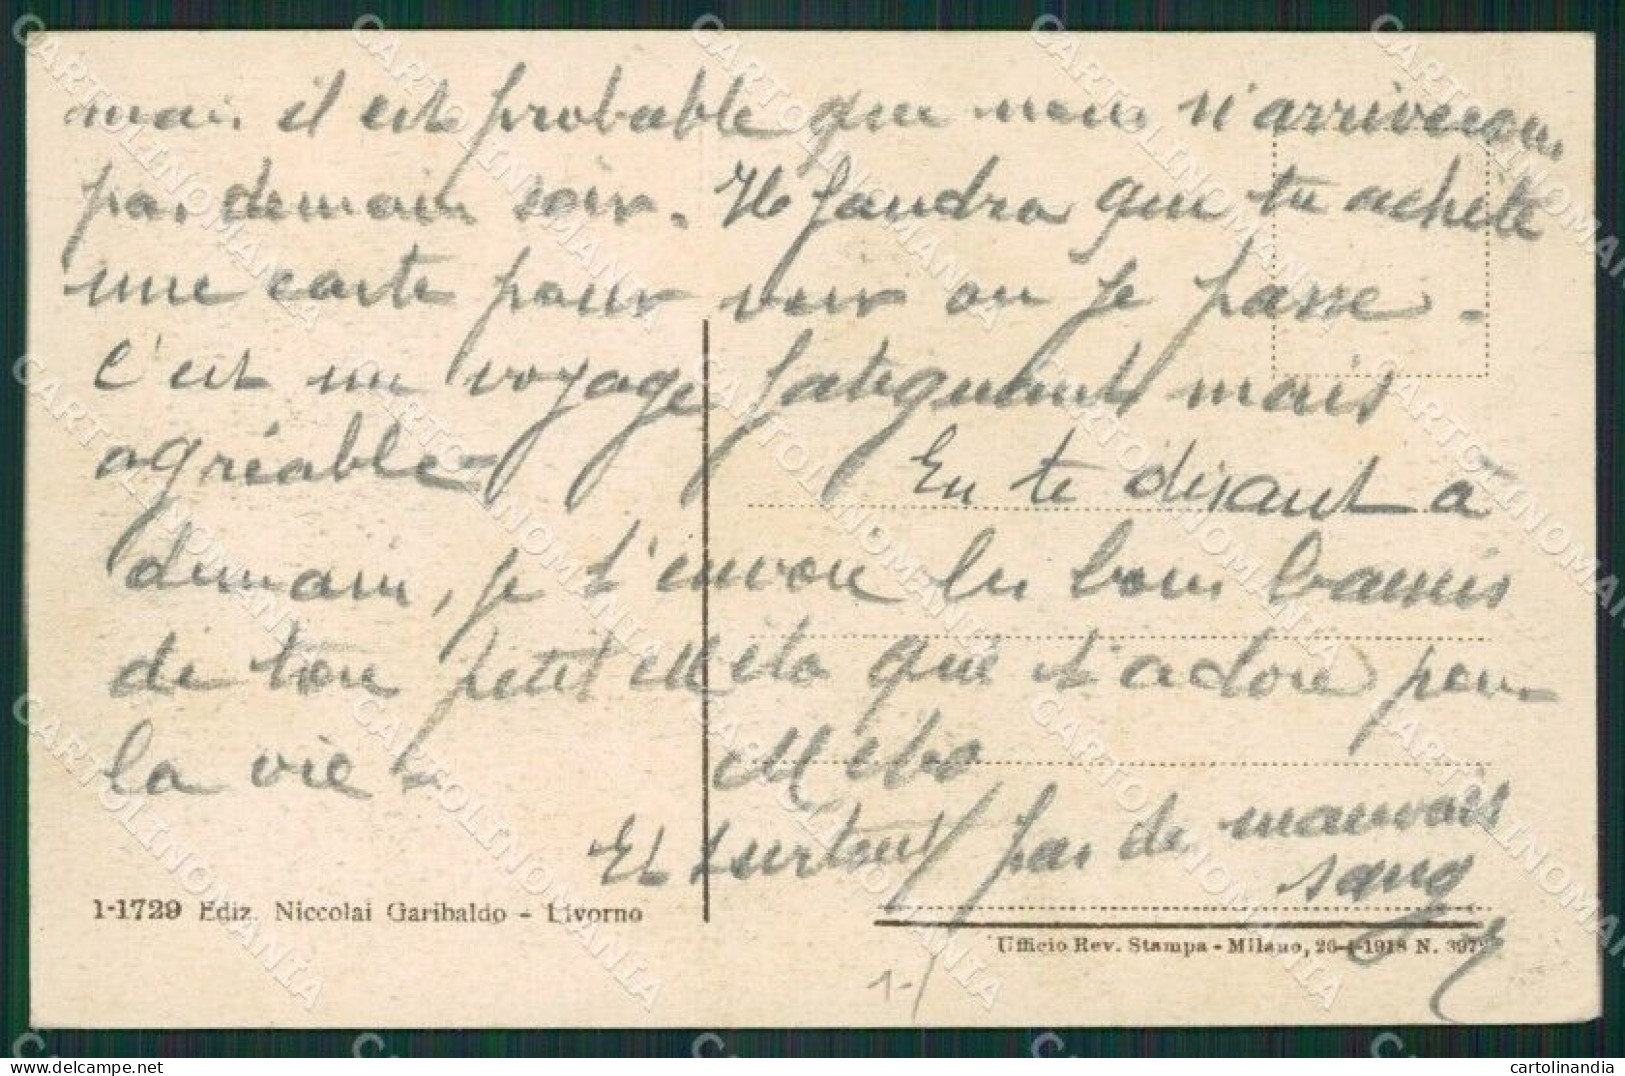 mais il est probable que nous n'arriverons
pas demain soir. Il faudra que tu achète
une carte pour voir ou je passe -
C'est un voyage fatiguant mais
agréable - En te disant à
demain, je t'envoie les bons baisers
de ton petit qui t'adore pour
la vie -
Et surtout pas de mauvais
sang
1-1729 Ediz. Niccolai Garibaldo - Livorno
Ufficio Rev. Stampa - Milano, 26-4-1918 N. 397
1-
CARTOLINOMANIA
cartolinandia